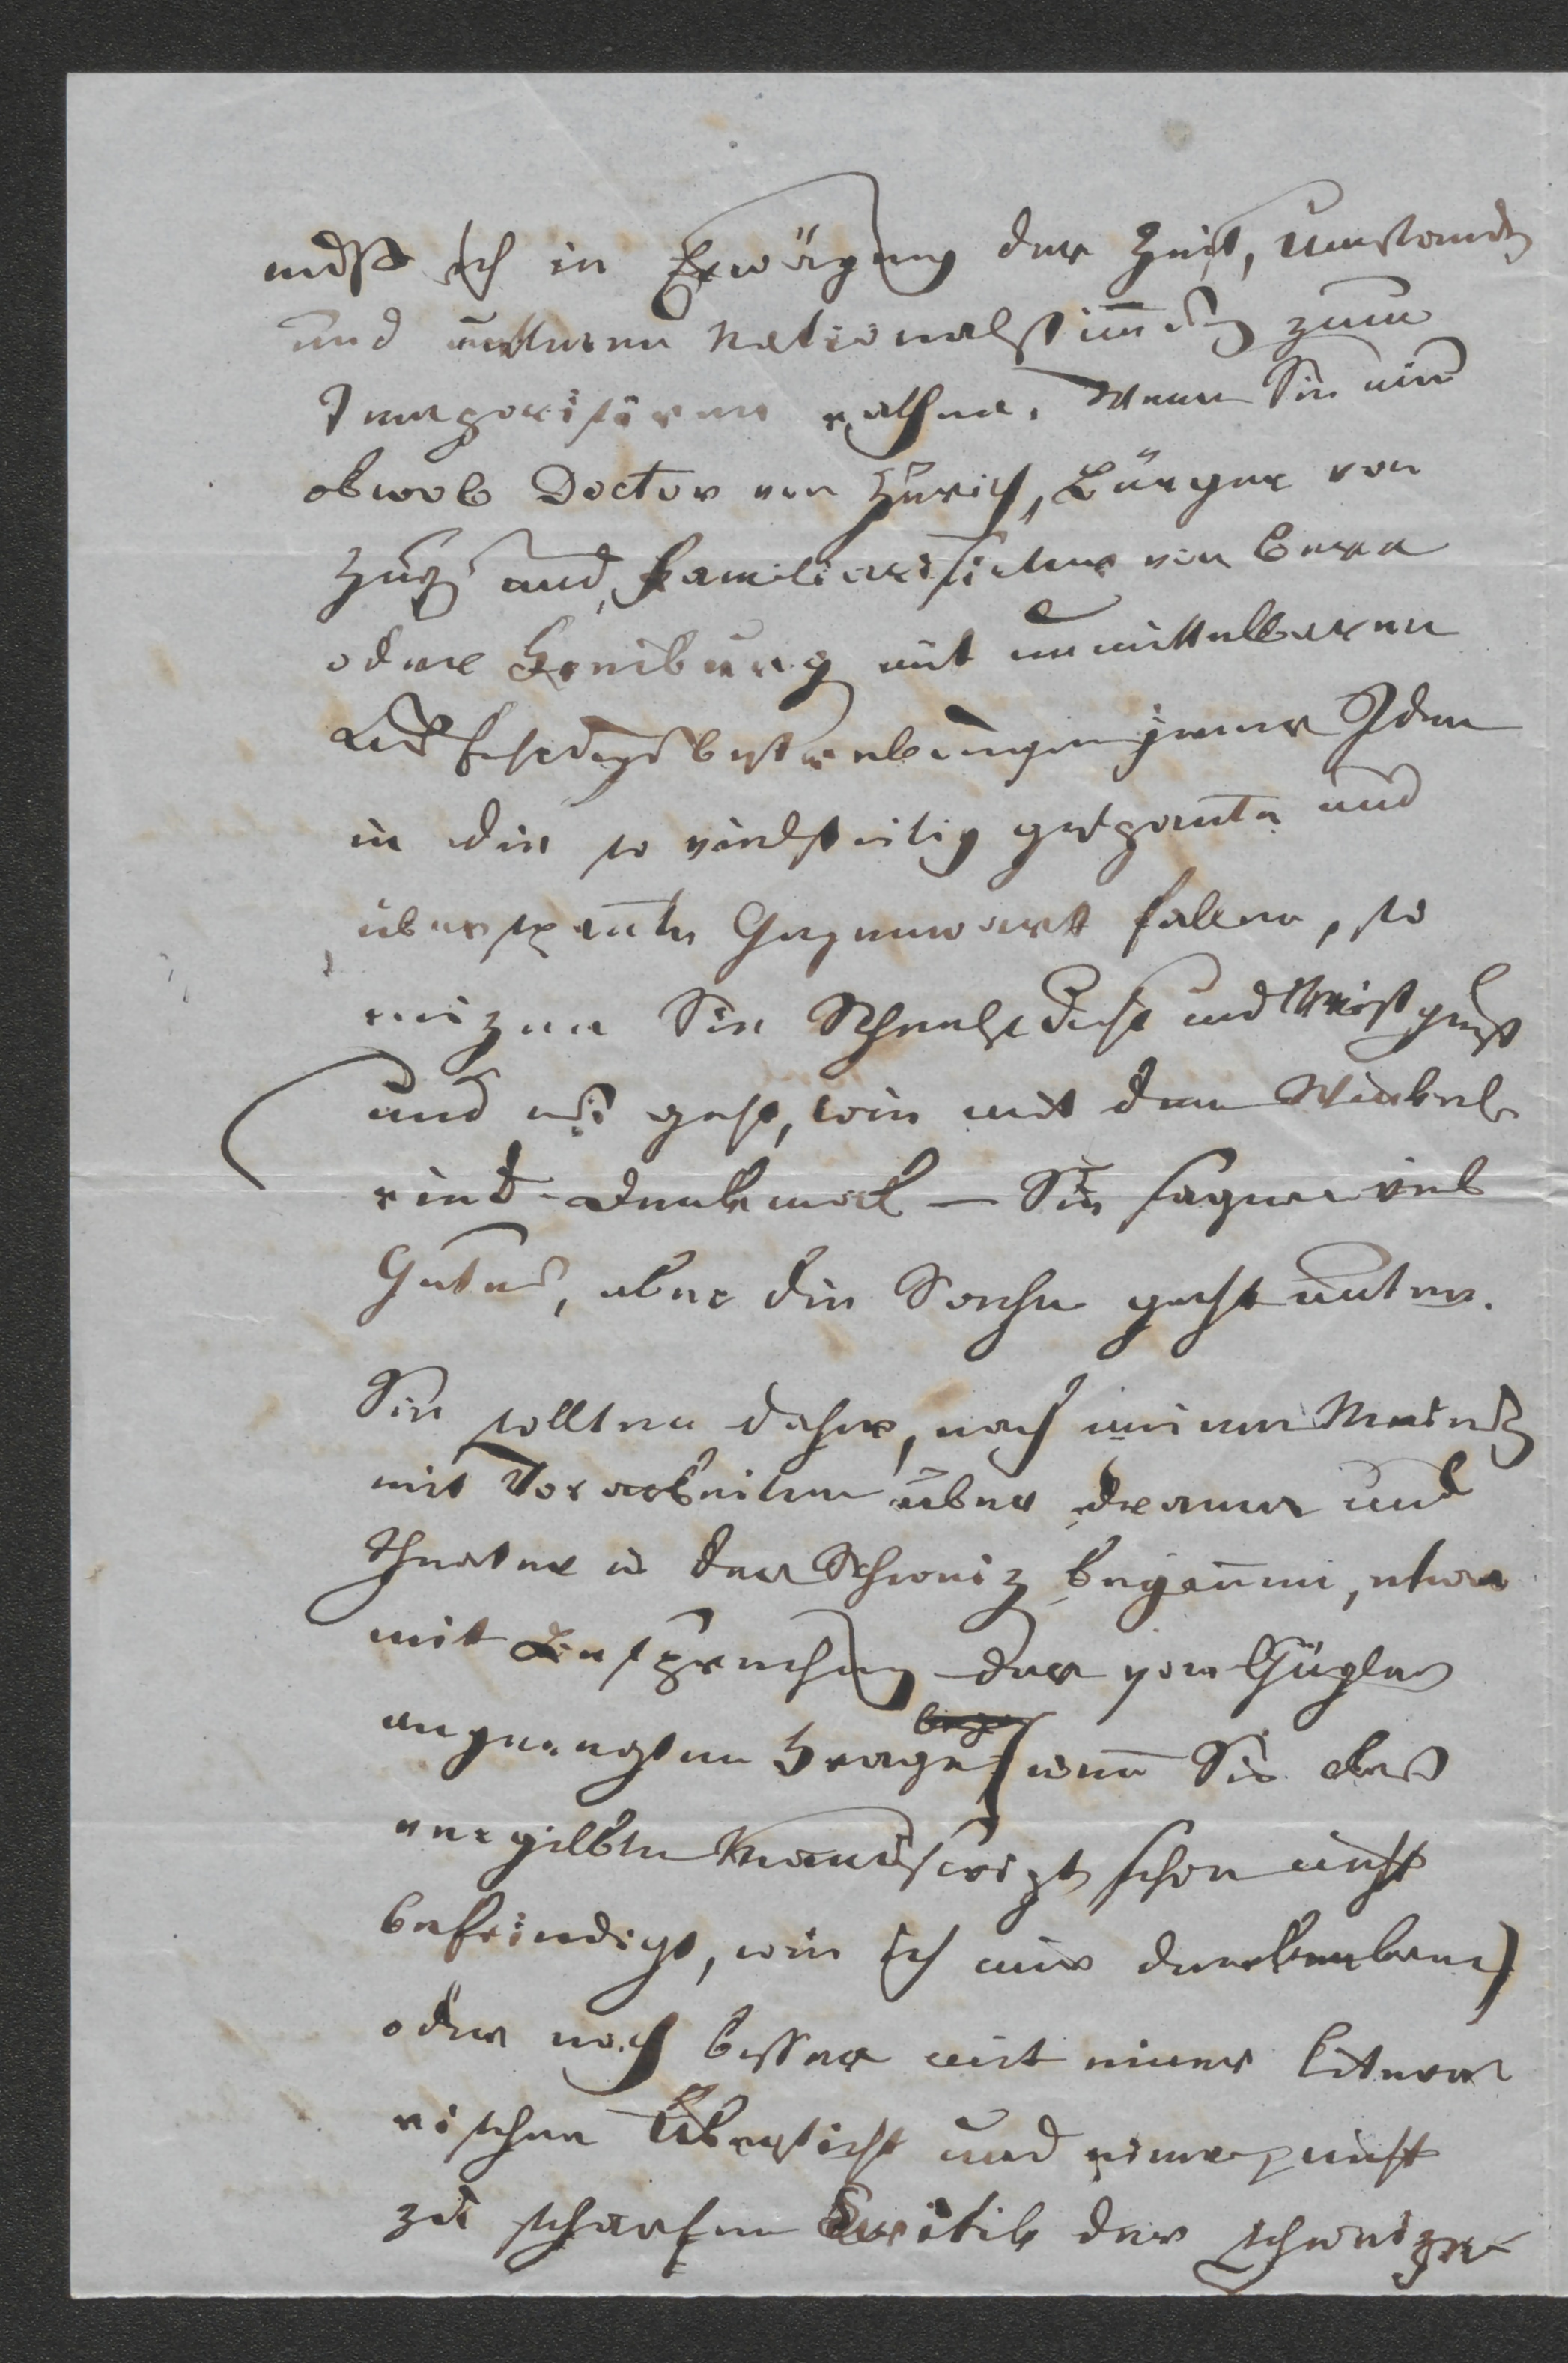 müßte ich in Erwägung der Zeit, Umstände
und unserer Nationalstimmung zum
Temporisiren rathen. Wenn Sie nun
obwol Doctor von Zürich, Bürger von
Zug und familiarisirter von Bern
oder Freiburg mit unmittelbaren
Ausführungsbestrebungen jener Idee
in die so vielseitig gespannte und
überspannte Gegenwart fallen, so
reizen Sie Scheelsucht und Mißgunst
und es geht, wie mit dem Winkel-
ried-Denkmal – Sie sagen viel
Gutes, aber die Sache geht unter.
Sie sollten daher, nach meiner Meinung
mit Vorarbeiten über Drama und
Theater in der Schweiz beginnen, etwa
mit Besprechung der von Gügler
angeregten Frage (wenn Sie das
vergilbte Manuscript schon nicht
befriedigt, wie ich mir denken kann)
oder noch besser mit einer litera-
rischen Übersicht und einer nicht
zu scharfen Kritik der schweize-